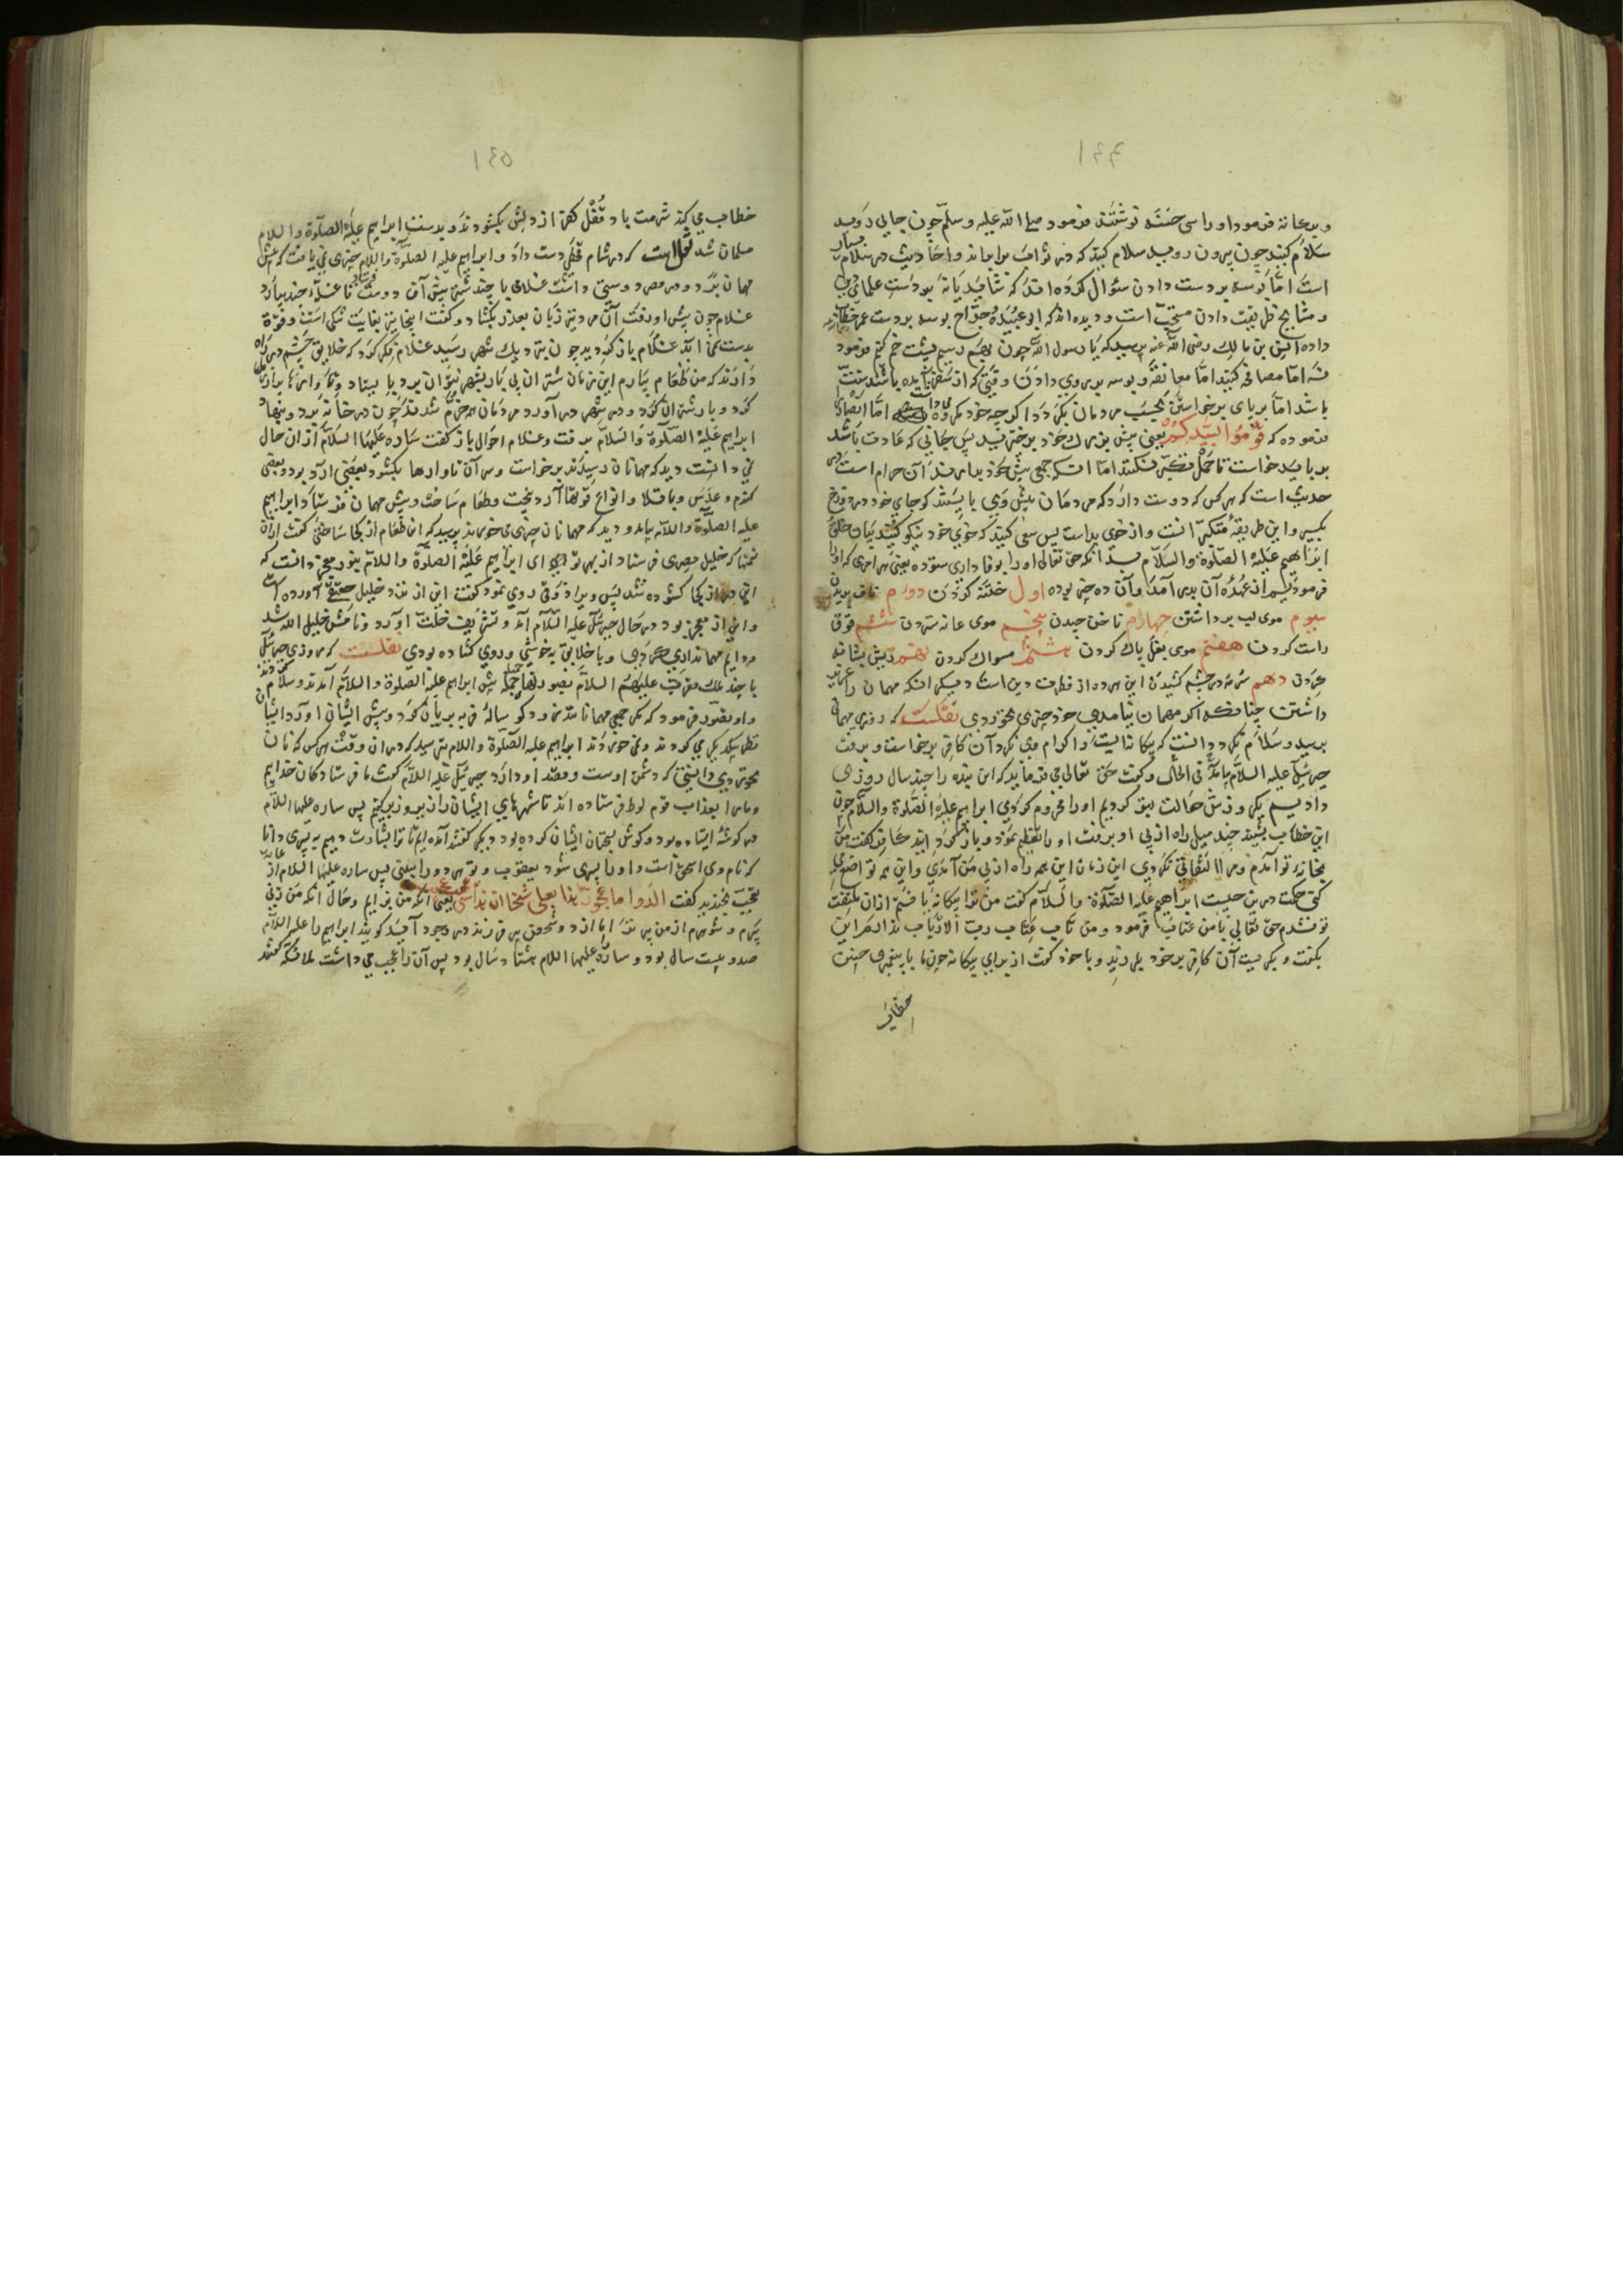 و بدخانه فرمود او را سی حسنه نوشتند فرمود صلی الله علیه وسلم چون جایی روید
سلام کنید چون بیرون روید سلام کنید که در ثواب برابراند و احادیث در سلام بسیار
است اما بوسه بر دست دادن سؤال کرده‌اند که شاید یا نه بدانست علمای دین
و مشایخ طریقت دادن مستحب است و دیده‌اند که ابو عبیدهٔ جراح بوسه بر دست عمر خطاب
داده انس بن مالک رضی الله عنه پرسید که یا رسول الله چون بهم رسیم پشت خم کنیم فرمود
نه اما مصافحه کنید اما معانقه و بوسه بر روی دادن وقتی که از سفر آیده باشند سنت
باشد اما بر پای برخواستن بحسب مردمان بکردد اگر چه خود مکروه اما انصار را
فرموده که قُومُوا لِسَیِّدِکُمْ یعنی پیش بزرک خود برخیزید پس جایی که عادت باشد
بر باید خواست تا حمل تکبر نکنند اما انکه جمعی پیش خود بدارند آن حرام است در
حدیث است که هر کس که دوست دارد که مردمان پیش وی بایستند کو جای خود در دوزخ
بکیر و این طریقهٔ متکبرانست و از خوی بد است پس سعی کنید که خوی خود نیکو کنید بیان خلق
ابراهیم علیه الصلوة والسلام بدانکه حق تعالی او را بوفاداری ستوده یعنی هر امری که او را
فرمودیم از عهدهٔ آن بدر آمد و آن ده چیز بوده اول ختنه کردن دورم ناف بریدن
سیوم موی لب برداشتن چهارم ناخن چیدن پنجم موی عانه ستردن ششم فرق
راست کردن هفتم موی بغل پاک کردن هشتم مسواک کردن نهم ریش بشانه
کردن دهم سرمه در چشم کشیدن این هر ده از فطرت دین است دیکر انکه مهمان را عزیز
داشتن چنانکه اکر مهمان نیامدی خود چیزی نخوردی نقلست که روزی مهمانی
برسید و سلام نکرد دانست که بیکانه است وا کرام وی نکرد آن کافر برخواست و برفت
جبرئیل علیه السلام بیامد فی الحال و کفت حق تعالی می فرماید که این بنده را چند سال روزی
دادیم یکروزش حوالت بتو کردیم او را محروم کردی ابراهیم علیه الصلوة والسلام چون
این خطاب بشنید چند میل راه از پی او برفت او را تعظیم نمود و باز کردانید کافر کفت من
بخانهٔ تو آمدم مرا التفاتی نکردی این زمان این همه راه از پی من آمدی و این همه تواضع می
کنی حکمت درین چیست ابراهیم علیه الصلوة والسلام کفت من ترا بیکانه یافتم ازان ملتفت
تو نشدم حق تعالی با من عتاب فرمود و من تاب عتاب رب الارباب ندارم این
بکفت و بکریست آن کافر بر خود بلرزید و با خود کفت از برای بیکانهٔ چون ما با پیغمبری چنین
خطاب
خطاب می کند شرمت باد قُفْل کفر از دلش بکشودند و بدست ابراهیم علیه الصلوة والسلام
مسلمان شد نقلست که در شام قحطی دست داد و ابراهیم علیه الصلوة والسلام چیزی نمی یافت که پیش
مهمان برد و در مصر دوستی داشت غلامی با چند شتر پیش آن دوست فرستاد تا غله چند بیارد
غلام چون پیش او رفت آن مرد نیز زبان بعذر بکشاد و کفت اینجا نیز بغایت تنکی است و قوة
بدست نمی آید غلام باز کردید چون نزدیک شهر رسید غلام فکر کرد که خلایق چشم در راه
دارند که من طعام بیارم این زمان شتران بی بار بشهر نتوان برد بایستاد و تمام انبانها پر از ریک
کرد و بار شتران کرد و در شهر در آورد مردمان همه خرم شدند چون در خانه برد و بنهاد
ابراهیم علیه الصلوة والسلام برفت و غلام احوال باز کفت ساره علیها السلام از ان حال
نمی دانست دید که مهمانان رسیدند برخواست و سر آن تاوارها بکشود بعضی آرد بود و بعضی
کندم و عدس و باقلا و انواع قوتها آرد بپخت و طعام ساخت و پیش مهمان فرستاد ابراهیم
علیه الصلوة والسلام بیامد و دید که مهمانان چیزی می خورند پرسید که این طعام از کجا ساختی کفت ازان
نعمتها که خلیل مصری فرستاد از بهر تو ای ابراهیم علیه الصلوة والسلام بنور معجزه دانست که
این در از کجا کشوده شد پس ویرا ذوقی روی نمود کفت این از نزد خلیل حقیقی آورده است
و این از معجزه بود در حال جبرئیل علیه السلام آمد و تشریف خلت آورد و نامش خلیل الله شد
و دایم مهمانداری کردی و با خلایق به خوشی و روی کشاده بودی نقلست که روزی جبرئیل
با چند ملک مقرب علیهم السلام بصورتها جمیله پیش ابراهیم علیه الصلوة والسلام آمدند و سلام کردند
و او تصور فرمود که مکر جمعی مهمانانند زود کوسالهٔ فربه بریان کرد و پیش ایشان آورد ایشان
نظر بیکدیکر می کردند و نمی خوردند ابراهیم علیه الصلوة والسلام بترسید که دران وقت هر کس که نان
نخوردی دانستی که دشمن اوست و قصد او دارد جبرئیل علیه السلام کفت ما فرستادکان خدایم
و ما را بعذاب قوم لوط فرستاده‌اند تا شهرهای ایشان را زیر و زبر کنیم پس ساره علیها السلام
در کوشهٔ ایستاده بود و کوش بسخنان ایشان کرده بود دیکر کفتند آمده‌ایم تا ترا بشارت دهیم به پسری دانا
که نام وی اسحق است و او را پسری شود یعقوب و تو هر دو را ببینی پس ساره علیها السلام از
تعجب بخندید کفت أألد وانا عجوز وهذا بعلی شیخا ان هذا لشیء عجیب یعنی آنکه من بزایم و حال آنکه من زنی
پیرم و شوهرم از من پیرتر ایا از دو شخص پیر فرزند در وجود آید کویند ابراهیم را علیه السلام
صد و بیست سال بود و ساره علیها السلام هشتاد سال بود پس آن را عجب می داشت ملائکه کفتند